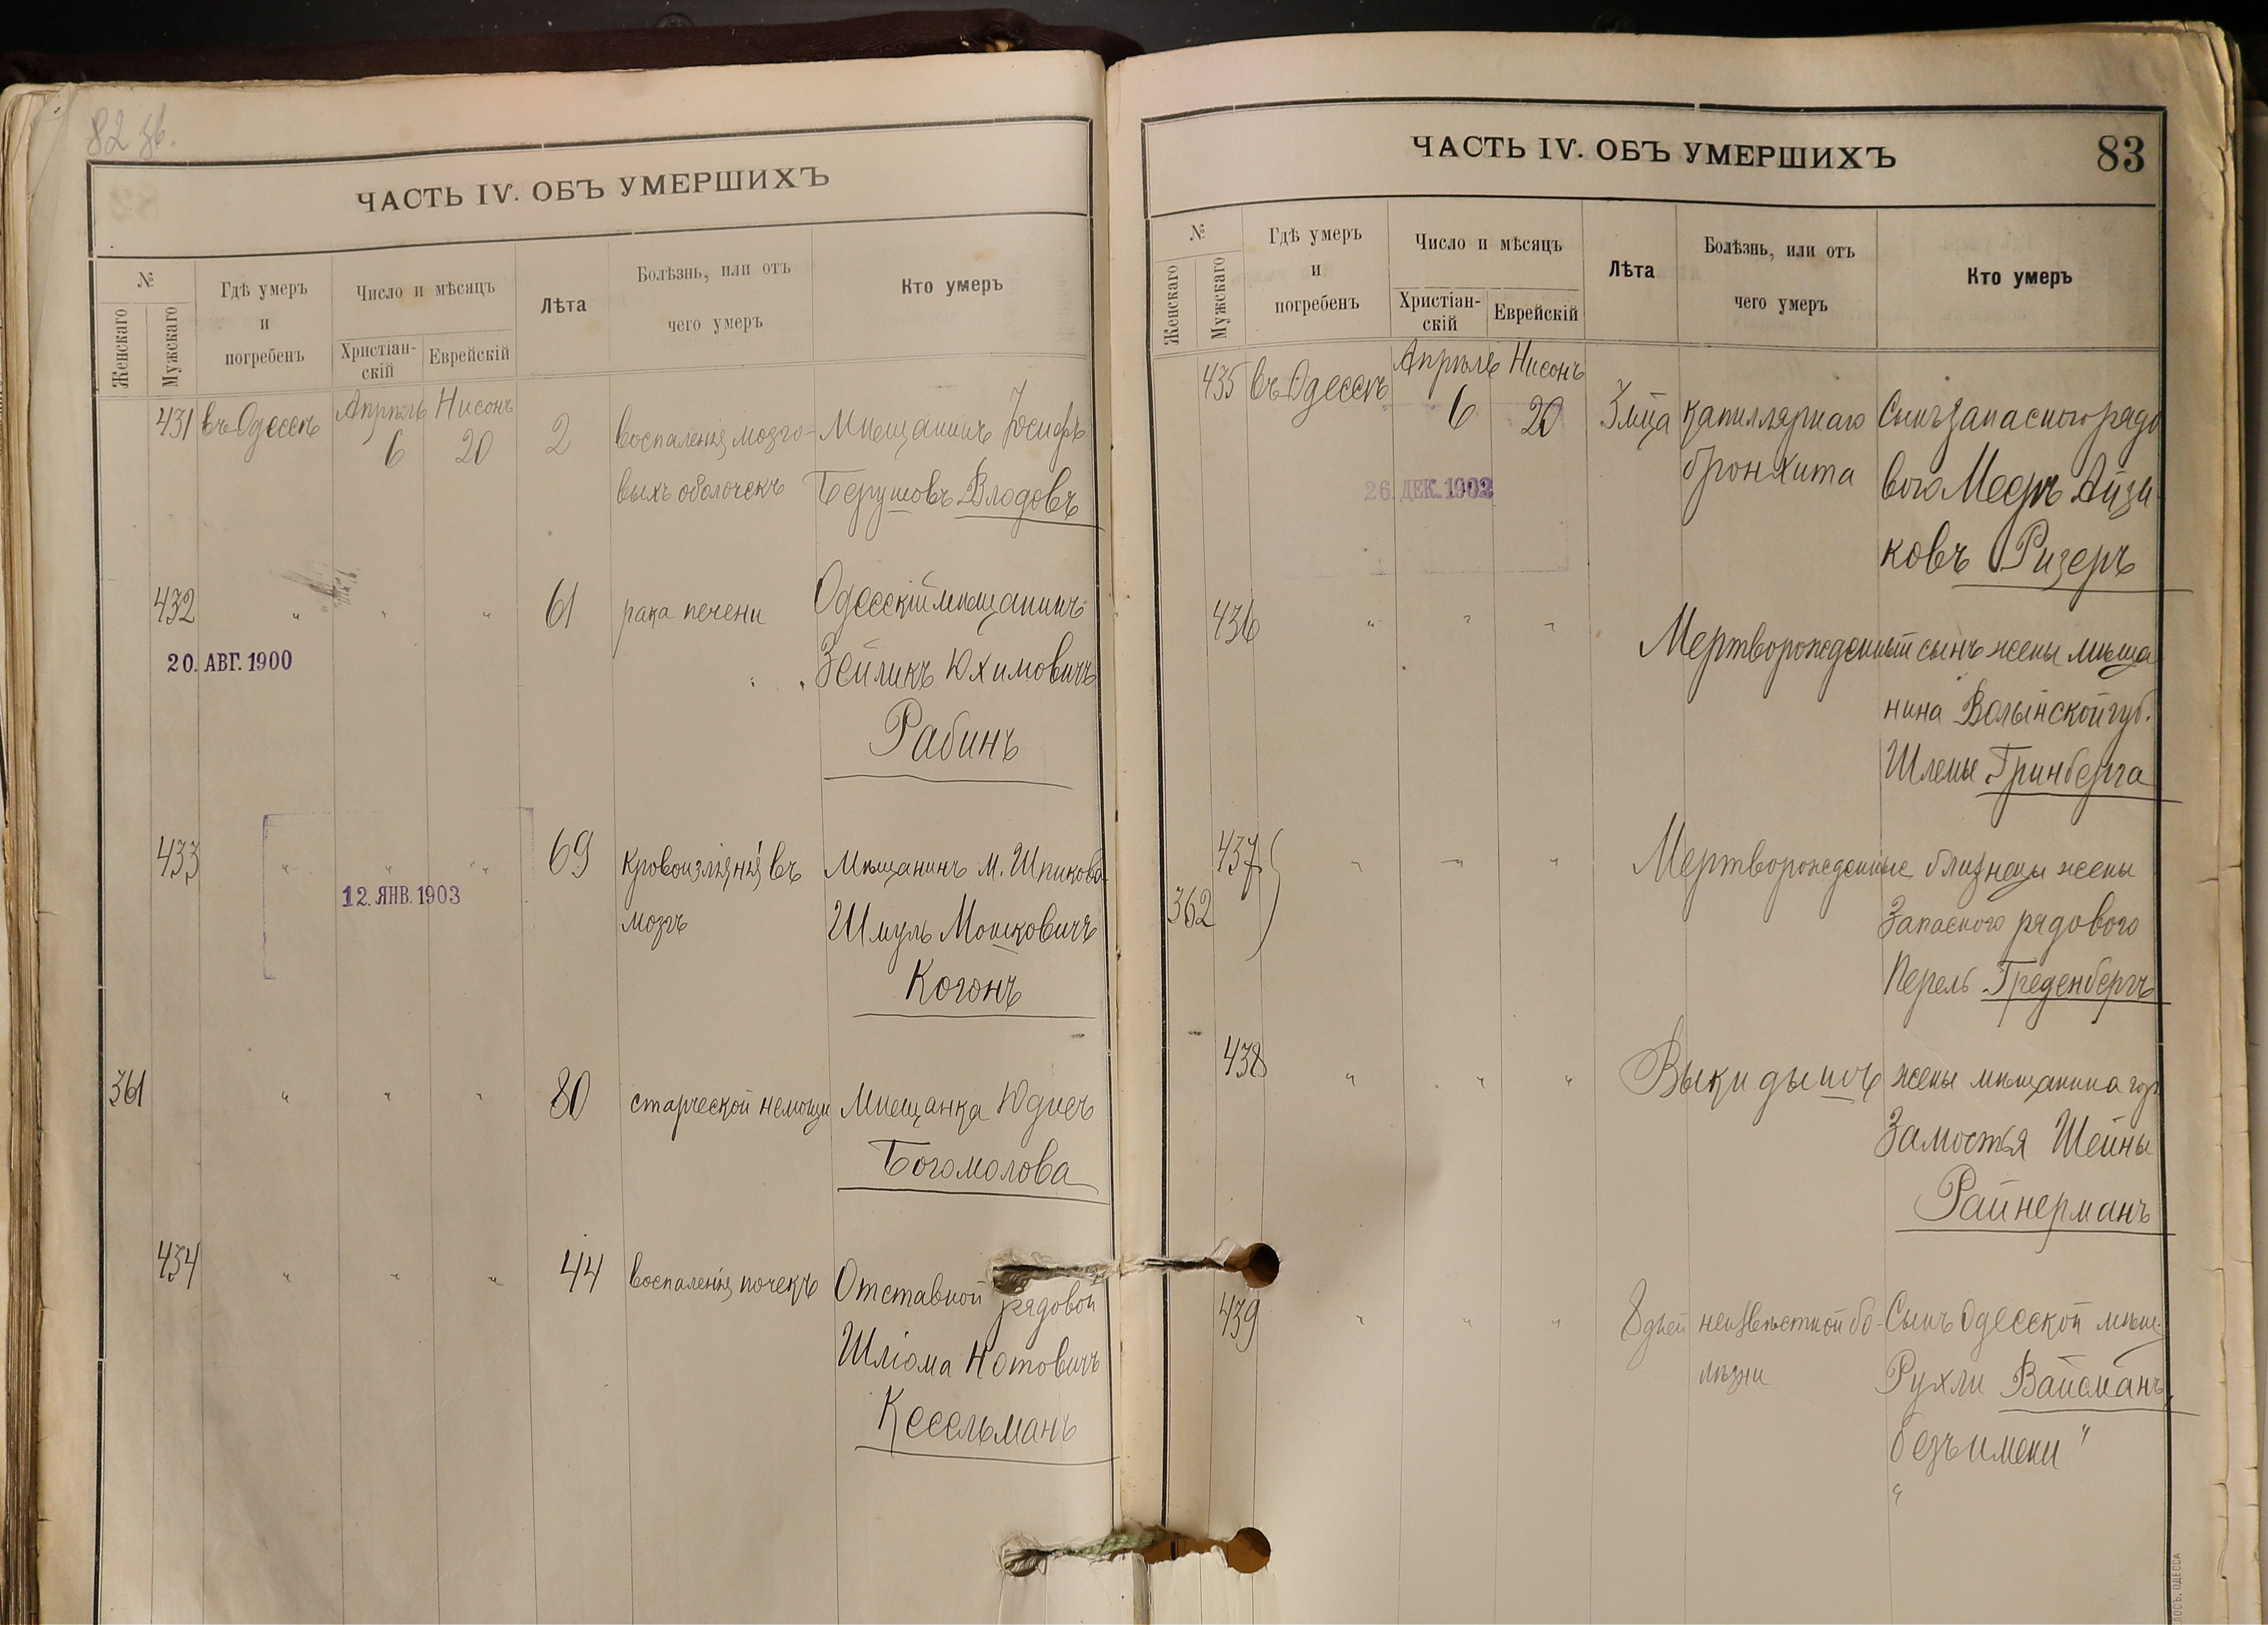 82 зв.
ЧАСТЬ IV. ОБЪ УМЕРШИХЪ
№
Женскаго
Мужскаго
Гдѣ умеръ
и
погребенъ
Число и мѣсяцъ
Христіан-
скій
Еврейскій
Лѣта
Болѣзнь, или отъ
чего умеръ
Кто умеръ
431 въ Одессѣ Апрѣль 6 Нисонъ 20 2 воспаленія мозго- Мѣщанинъ Іосифъ
выхъ оболочекъ Берушовъ Влодовъ
432 " " " 61 рака печени Одесскій мѣщанинъ
20. АВГ. 1900
Зейликъ Юхимовичъ
Рабинъ
433 " " " 69 кровоизліянія въ Мѣщанинъ м. Шпикова
12. ЯНВ. 1903
мозгъ Шмуль Мошковичъ
Когонъ
361 " " " 80 старческой немощи Мѣщанка Юдиеъ
Богомолова
434 " " " 44 воспаленія почекъ Отставной рядовой
Шліома Нотовичъ
Кесельманъ
ЧАСТЬ IV. ОБЪ УМЕРШИХЪ
83
№
Женскаго
Мужскаго
Гдѣ умеръ
и
погребенъ
Число и мѣсяцъ
Христіан-
скій
Еврейскій
Лѣта
Болѣзнь, или отъ
чего умеръ
Кто умеръ
435 въ Одессѣ Апрѣль 6 Нисонъ 20 3 мѣца капиллярнаго Сынъ запасного рядо
26. ДЕК. 1903
бронхита вого Мееръ Айзи
ковъ Ризеръ
436 " " " Мертворожденный сынъ жены мѣща
нина Волынской губ.
Шлемы Гринберга
437 " " " Мертворожденные близнецы жены
362 Запасного рядового
Перель Греденбергъ
438 " " " Выкидышъ жены мѣщанина гор.
Замостья Шейны
Райнерманъ
439 " " " 8 дней неизвѣстной бо- Сынъ Одесской мѣщ.
лѣзни Рухли Вайсманъ,
безъ имени "
"